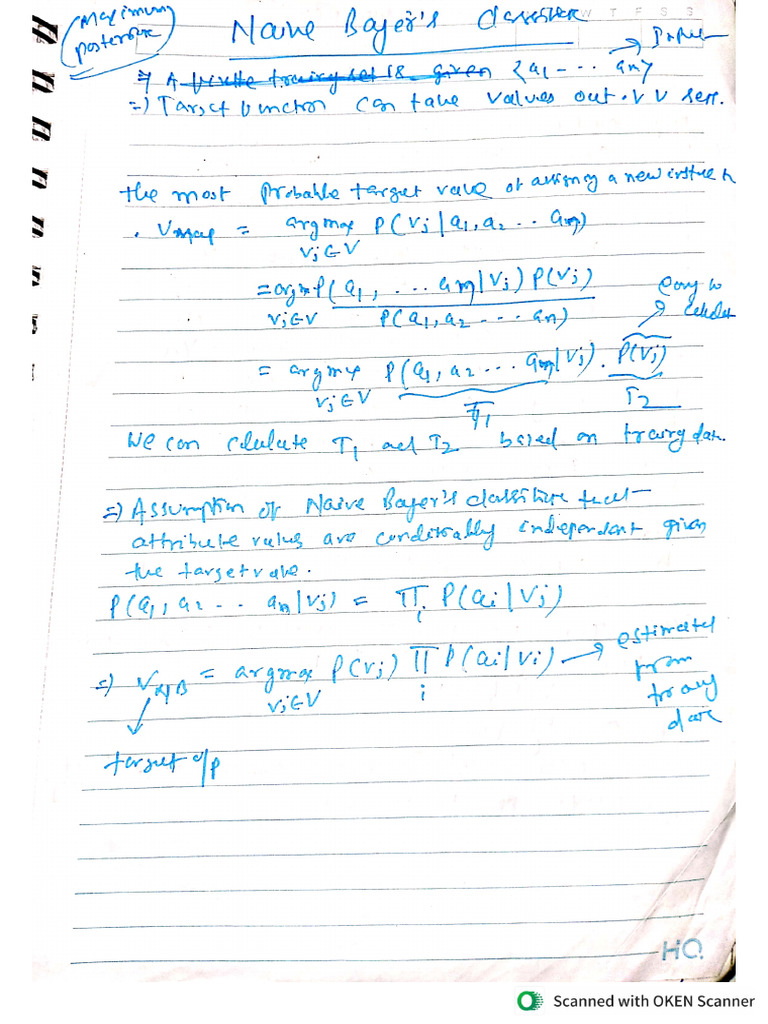 (Maximum posterior)
Naive Bayer's classifier
W T F S S
→ Input
⇒ A finite training set is given {a1 - ... an}
⇒) Target function can take values out . V V
the most Probable target value of a new
. VMap = argmax P(vj | a1, a2 .. an)
vj ∈ V
= argm P(a1, ... an | vj) P(vj)
vj ∈ V P(a1, a2 --- an)
easy to calculate
= argmax P(a1, a2 ... an | vj) . P(vj)
vj ∈ V T1 T2
We can calculate T1 and T2 based on training data.
⇒) Assumption of Naive Bayer's classifier that
attribute values are conditionally independent given
the target value.
P(a1, a2 -- an | vj) = Πi P(ai | vj)
⇒) VNB = argmax P(vj) Π P(ai | vi) → estimated from training data
vj ∈ V i
target o/p
HQ
Scanned with OKEN Scanner